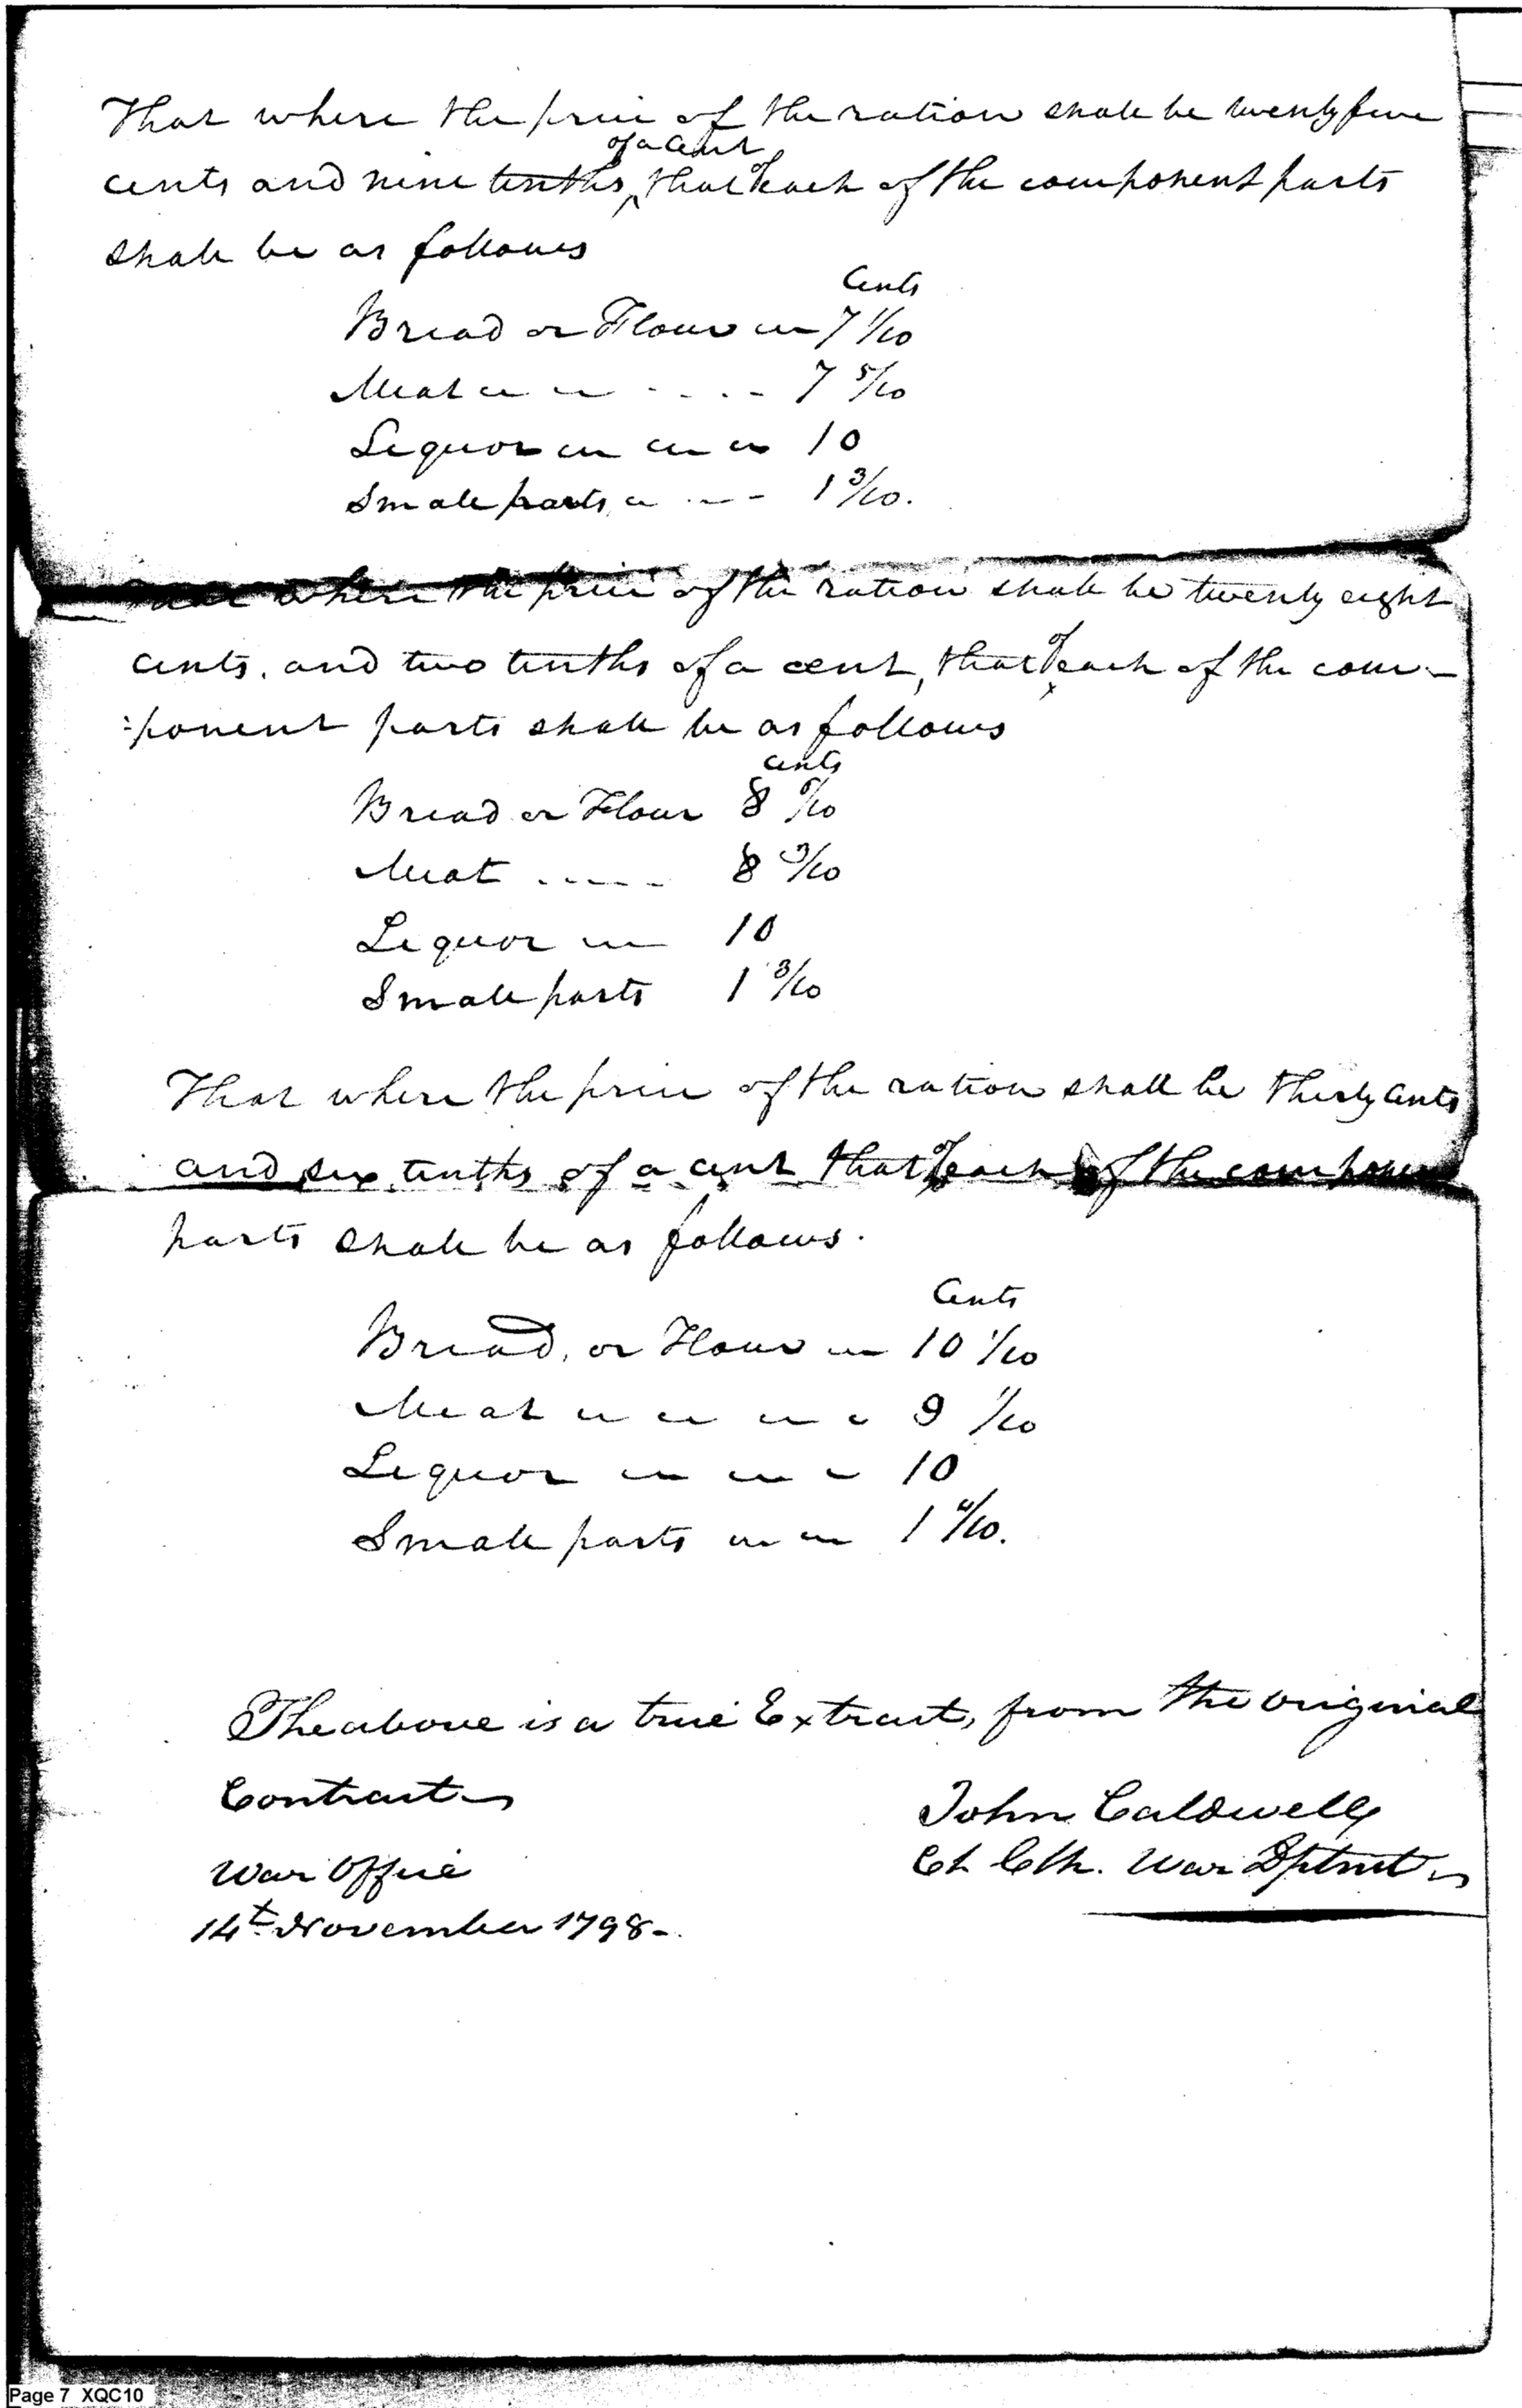 That where the price of the ration shall be twenty five
of a Cent
cents and nine tenths, that of each of the component parts
shall be as follows
Cents
Bread or Flour 7 1/10
Meat 7 5/10
Liquor 10
Small parts 1 3/10.
where the price of the ration shall be twenty eight
cents. and two tenths of a cent, that of each of the com-
:ponent parts shall be as follows
cents
Bread or Flour 8 6/10
Meat ..... 8 3/10
Liquor 10
Small parts 1 3/10
That where the price of the ration shall be thirty Cents
and six tenths of a cent that of each of the component
parts shall be as follows.
Cents
Bread, or Flour 10 1/10
Meat 9 1/10
Liquor 10
Small parts 1 4/10.
The above is a true Extract, from the original
Contract
John Caldwell
Ch Clk. War Dptmt
War Office
14th November 1798-
Page 7 XQC10